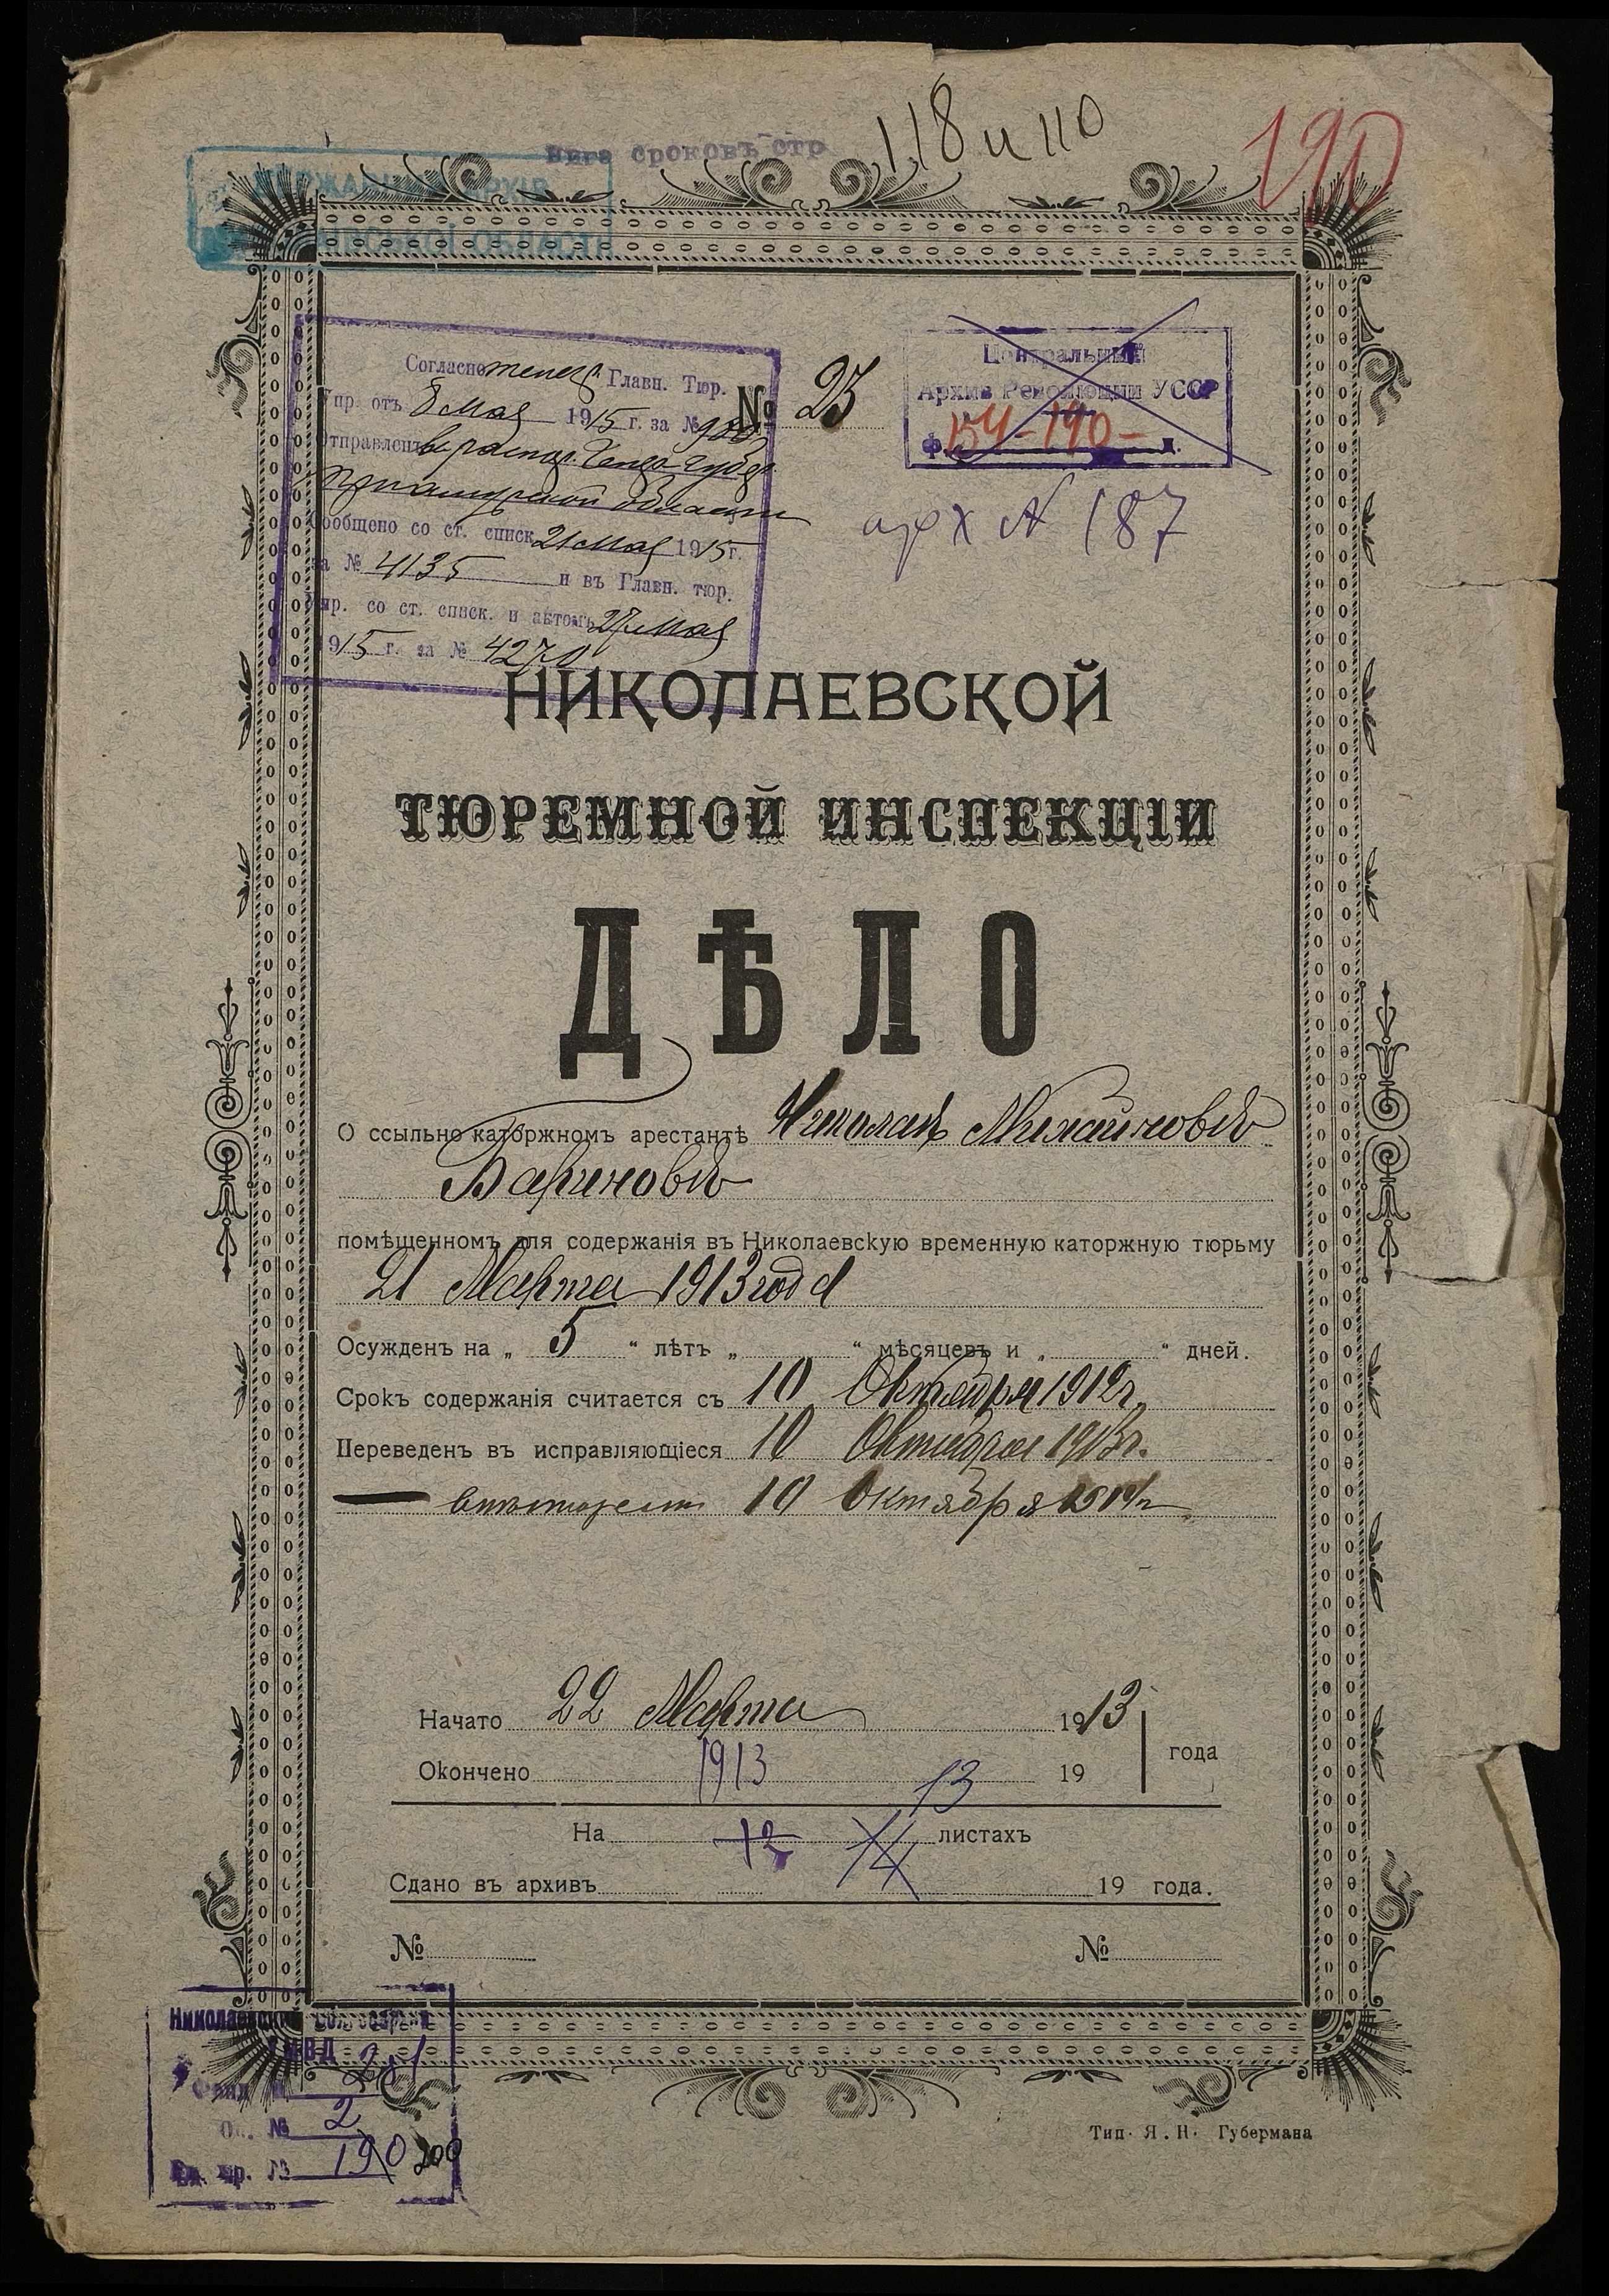 118 и 110
190
сроковъ стр
Согласно телегр. Главн. Тюр.
Упр. отъ 8 Мая 1915 г. за №
Отправленъ въ распор. Генер-Губер.
Приамурской области
Сообщено со ст. списк. 21 Мая 1915 г.
за № 4135 и въ Главн. тюр.
Упр. со ст. списк. и актомъ 27 Мая
1915 г. за № 4270
№ 23
Центральный
Архив Революции УССР
Ф. 154-190- д.
арх № 187
НИКОЛАЕВСКОЙ
ТЮРЕМНОЙ ИНСПЕКЦІИ
ДѢЛО
О ссыльно каторжномъ арестантѣ Николаѣ Михайловѣ
Бариновѣ
помѣщенномъ для содержанія въ Николаевскую временную каторжную тюрьму
21 Марта 1913 года
Осужденъ на „ 5 “ лѣтъ „ “ мѣсяцевъ и „ “ дней.
Срокъ содержанія считается съ 10 Октября 1912 г.
Переведенъ въ исправляющіеся 10 Октября 1913 г.
10 Октября
Начато 22 Марта 1913
года
Окончено 1913 19
13
На 12 14 листахъ
Сдано въ архивъ 19 года.
№ №
Николаевский Облгосархив
УНВД
Фонд № 231
Оп. № 2
Ед. хр. № 190 200
Тип. Я. Н. Губермана